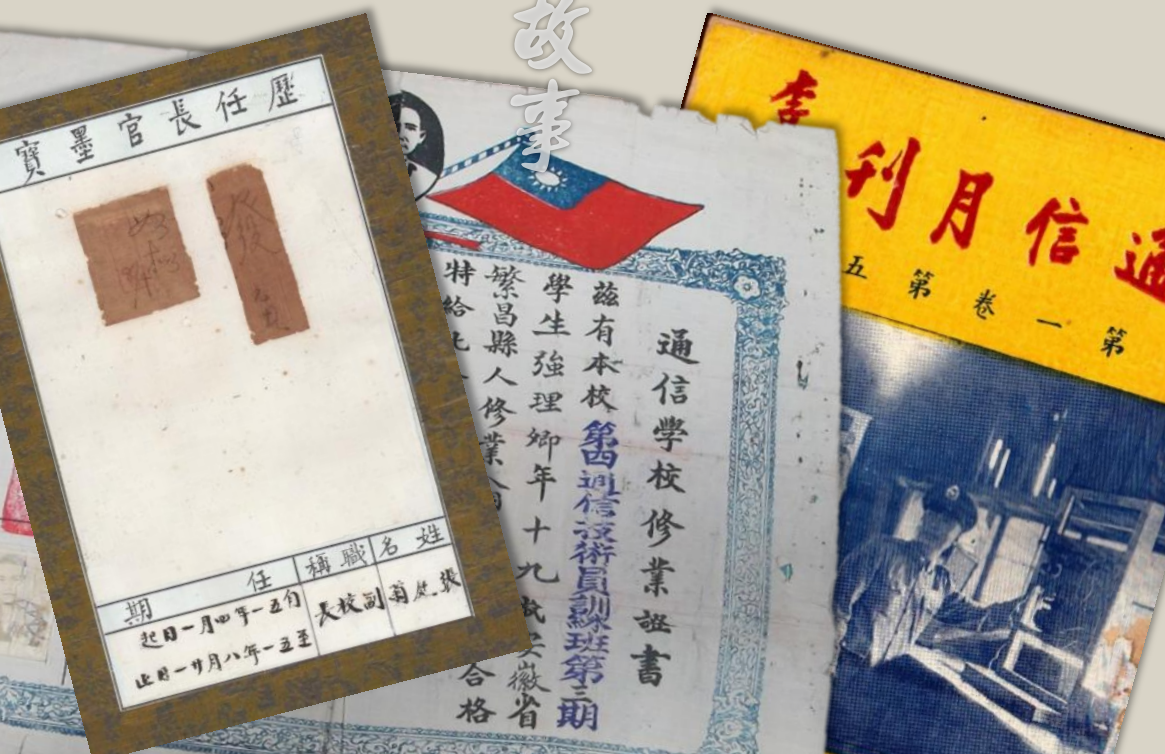 故事
歷任長官墨寶
發
姓名
職稱
任期
張
副校長
自五一年四月一日起
至五一年八月廿一日止
通信學校修業證書
茲有本校第四通信技術員訓練班第三期
學生強理卿年十九歲安徽省
繁昌縣人修業 合格
特給
通信月刊
第一卷第五